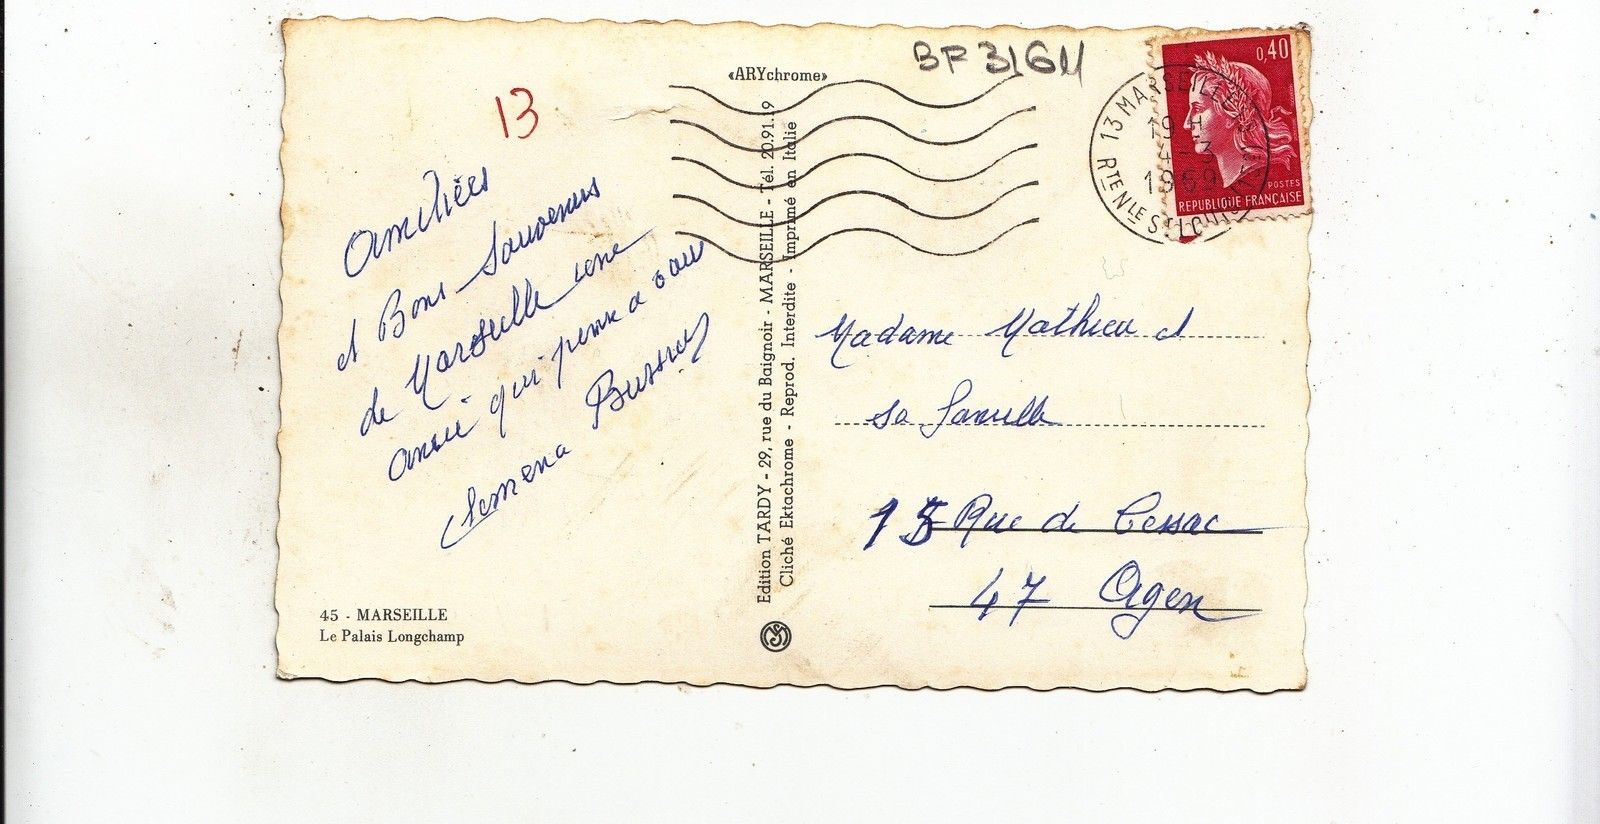 13
Amitiées
et Bons Souvenirs
de Marseille une
amie qui pense a vous
45 - MARSEILLE
Le Palais Longchamp
«ARYchrome»
Edition TARDY - 29, rue du Baignoir - MARSEILLE - Tél. 20.91.19
Cliché Ektachrome - Reprod. Interdite - Imprimé en Italie
BF 31611
0,40
POSTES
REPUBLIQUE FRANÇAISE
13 MARSEILLE
19 H
4-3
1969
RTE NLE ST LOUIS
Madame Mathieu et
sa famille
15 Rue de Cessac
47 Agen